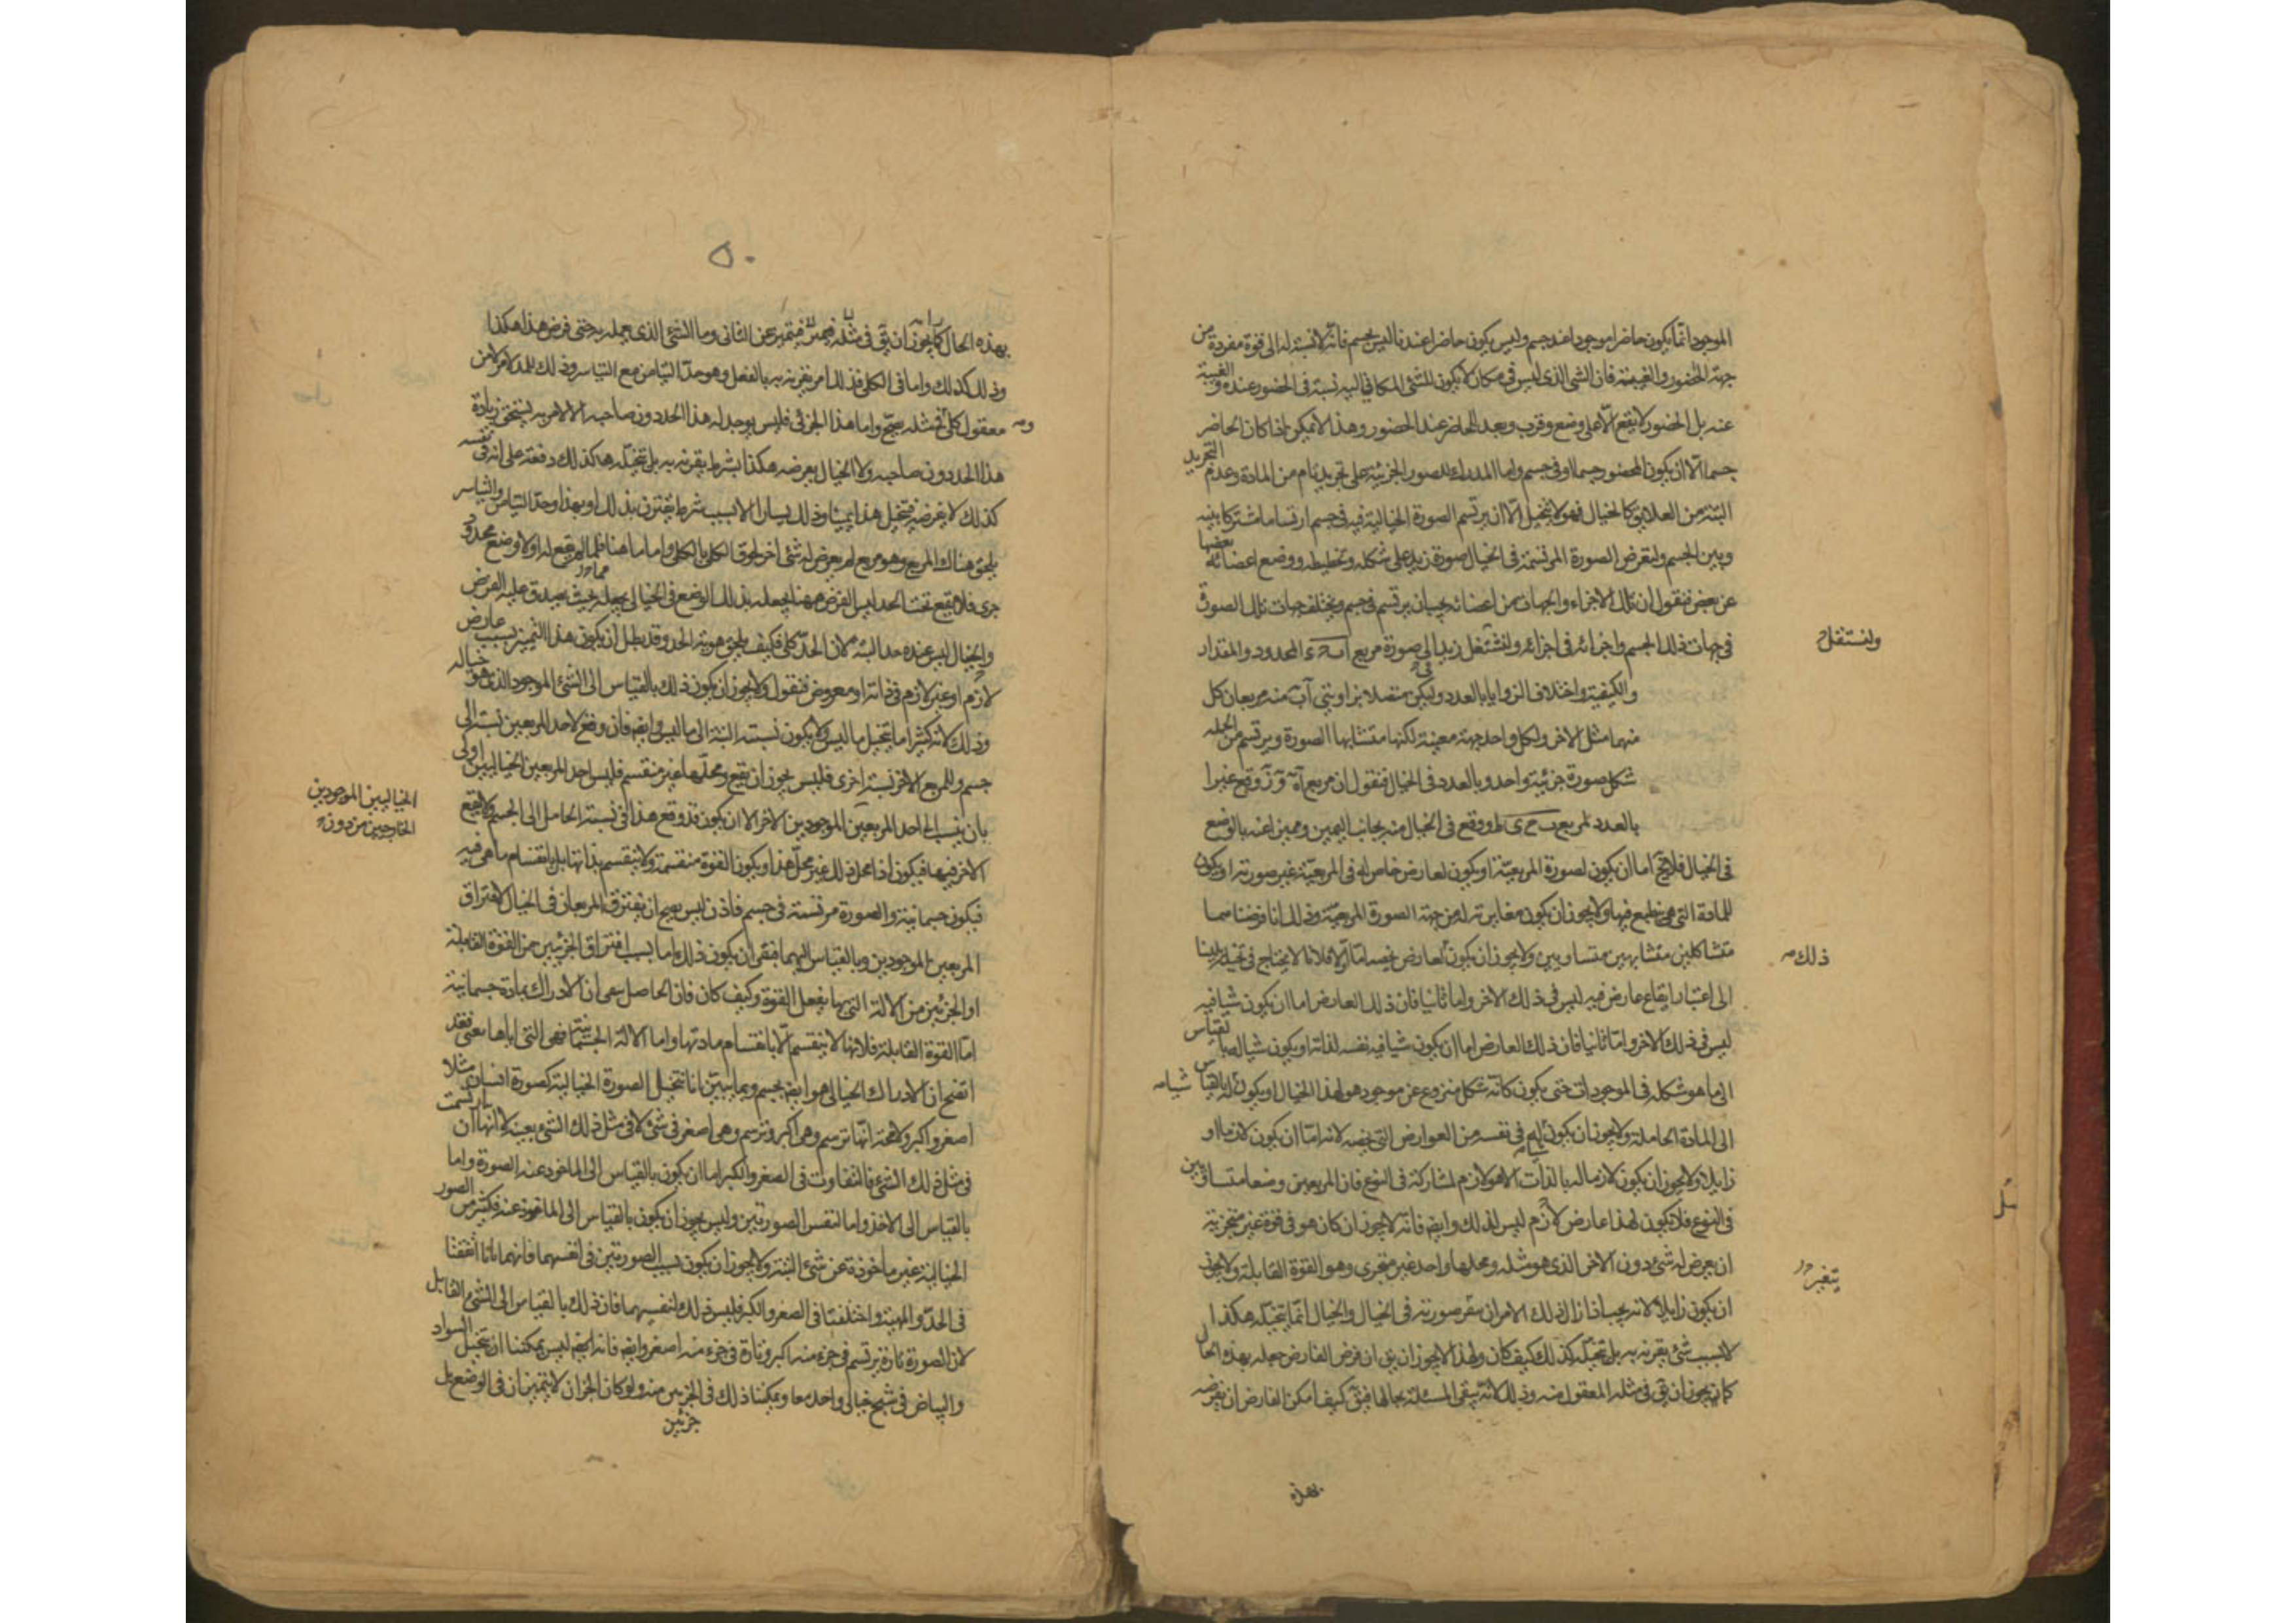 الموجود انما يكون حاضرا موجودا عند جسم وليس يكون حاضرا عندما ليس بجسم فانه لا نسبة له الى قوة مفردة من
جهة الحضور والغيبة فان الشئ الذى ليس فى مكان لا يكون للشئ المكانى اليه نسبة فى الحضور عنده والغيبة
عنه بل الحضور لا يقع الا على وضع وقرب وبعد للحاضر عند الحضور وهذا لا يمكن اذا كان الحاضر
جسما الا ان يكون المحضور جسما او فى جسم واما المدرك للصور الجزئية على تجريد تام من المادة وعدم التجريد
البتة من العلايق كالخيال فهو لا يتخيل الا ان يرتسم الصورة الخيالية فيه فى جسم ارتساما مشتركا بينه
وبين الجسم ولنفرض الصورة المرتسمة فى الخيال صورة زيد على شكله وتخطيطه ووضع اعضائه بعضها
عن بعض فنقول ان تلك الاجزاء والجهات من اعضائه يجب ان يرتسم فى جسم ويختلف جهات تلك الصورة
فى جهات ذلك الجسم واجزائه فى اجزائه ولنشتغل زيد الى صورة مربع المحدود والمقدار
ولننتقل
والكيفية واختلاف الزوايا بالعدد وليكن متصلا بزاويتى آب منه مربعان كل
منهما مثل الاخر ولكل واحد جهة معينة لكنها متشابها الصورة ويرتسم من الجملة
شكل صورة جزئية واحد وبالعدد فى الخيال فنقول ان مربع وقع غيرا
بالعدد لمربع ووقع فى الخيال منه بجانب اليمين ومميز اعنه بالوضع
فى الخيال فلايخ اما ان يكون لصورة المربعية او يكون لعارض خاص له فى المربعية غير صورته او يكون
للمادة التى هى منطبع فيها ولا يجوز ان يكون مغايرته له من جهة الصورة المربعية وذلك انا فرضناهما
متشاكلين متشابهين متساويين ولا يجوز ان يكون لعارض يخصه اما اولا فلانا لا نحتاج فى تخيله يمينا
ذلك
الى اعتبار ايقاع عارض فيه ليس فى ذلك الاخر واما ثانيا فان ذلك العارض اما ان يكون شيا فيه
ليس فى ذلك الاخر واما ثانيا فان ذلك العارض اما ان يكون شيا فيه نفسه لذاته او يكون شيا له بالقياس
الى ما هو شكله فى الموجودات حتى يكون كانه شكل منزوع عن موجود هو لهذا الخيال او يكون له بالقياس
شيا
الى المادة الحاملة ولا يجوز ان يكون له فى نفسه من العوارض التى تخصه لانه اما ان يكون لازما او
زايلا ولا يجوز ان يكون لازما له بالذات الا هو لازم لمشاركه فى النوع فان المربعين وضعا متساويين
فى النوع فلا يكون لهذا عارض لازم ليس لذلك وايضا فانه لا يجوز ان كان هو فى قوة غير متجزية
ان يعرض له شئ دون الاخر الذى هو مثله ومحلهما واحد غير متجزى وهو القوة القابلة ولا يجوز
يتغير
ان يكون زايلا لانه يجب اذا زال ذلك الامر ان يتغير صورته فى الخيال والخيال انما يتخيله هكذا
لا بسبب شئ يقرنه به بل تخيله كذلك كيف كان ولهذا لا يجوز ان يق ان فرض الفارض جعله بهذه الحال
كما يجوز ان يق فى مثله المعقول منه وذلك لانه يبقى المسئلة بحالها فيق كيف امكن الفارض ان يفرضه
بهذه
٥٠
بهذه الحال كما يجوز ان يق فى مثله فيتميز عن الثانى وما الشئ الذى يعمله به حتى فرض هذا هكذا
وذلك كذلك واما فى الكلى فذلك امر يقرنه به بالفعل وهو حد التيامن مع التياسر وذلك للمد لامر من
معقول كلى مثله يصح واما هذا الجزئى فليس يوجد له هذا الحد دون صاحبه الا لامر به يستحق زيادة
هذا الحد دون صاحبه ولا الخيال يفرضه هكذا بشرط يقرنه به بل تتخيله هكذا كذلك دفعة على انه فى نفسه
كذلك لا بفرضه فيتخيل هذا يمينا وذلك يسارا الا بسبب شرط يقترن بذلك او بهذا وحد التيامن والتياسر
يلحق هناك المربع وهو مربع لم يعرض له شئ اخر لحوق الكلى بالكلى واما هاهنا فلما لم يقع له اولا وضع محدود
جزى فلا يقع تحت الحد ليس الفرض ههنا يجعله بذلك الوضع فى الخيال يجعله بحيث يصدق عليه الفرض
والخيال ليس عنده حد البتة لان الحد كلى فكيف يلحق هوية الحد وقد بطل ان يكون هذا التميز بسبب عارض
لازم او غير لازم فى ذاته او مفروض فنقول ولا يجوز ان يكون ذلك بالقياس الى الشئ الموجود الذى هو خياله
وذلك لانه كثيرا ما يتخيل ما ليس ولا يكون نسبته البتة الى ما ليس وايضا فان وقع لاحد المربعين نسبة الى
جسم وللمربع الاخر نسبة اخرى فليس يجوز ان يقع ومحلهما غير منقسم فليس احد المربعين الخياليين اولى
الخياليين الموجودين
الخارجين من دون
بان ينسب الى احد المربعين الموجودين الاخر الا ان يكون قد وقع هذا فى نسبة الحامل الى الجسم ولا يقع
الاخر فيها فيكون اذا محل ذلك غير محل هذا ويكون القوة منقسمة ولا ينقسم بذاتها بل بانقسام ما هى فيه
فيكون جسمانية والصورة مرتسمة فى جسم فاذن ليس يصح ان يفترق المربعان فى الخيال لافتراق
المربعين الموجودين وبالقياس اليهما فبقى ان يكون ذلك اما بسبب افتراق الجزئين من القوة القابلة
او الجزئين من الالة التى بها يفعل القوة وكيف كان فان الحاصل يبقى ان الادراك بمادة جسمانية
اما القوة القابلة فلانها لا ينقسم الا بانقسام مادتها واما الالة الجسمانية فهى التى اياها نعنى فقد
اتضح ان الادراك الخيالى هو ايضا بجسم ومما يبين انا نتخيل الصورة الخيالية كصورة انسان مثلا
اصغر واكبر ولا محة انها ترتسم وهى اكبر وترتسم وهى اصغر فى شئ لا فى مثل ذلك الشئ بعينه لانها ان ارتسمت
فى مثل ذلك الشئ فالتفاوت فى الصغر والكبر اما ان يكون بالقياس الى الماخوذ عنه الصورة واما
بالقياس الى الاخذ واما لنفس الصورتين وليس يجوز ان يكون بالقياس الى الماخوذ عنه فكثير من الصور
الخيالية غير ماخوذة عن شئ البتة ولا يجوز ان يكون بسبب الصورتين فى انفسهما فانهما لما اتفقتا
فى الحد والمهية واختلفتا فى الصغر والكبر فليس ذلك لنفسيهما فان ذلك بالقياس الى الشئ القابل
لان الصورة تارة ترتسم فى جزء منه اكبر وتارة فى جزء منه اصغر وايضا فانه ليس يمكننا ان نتخيل السواد
والبياض فى شبح خيالى واحد معا ويمكننا ذلك فى الجزئين منه ولو كان الجزان لا يتميزان فى الوضع بل
جزئين